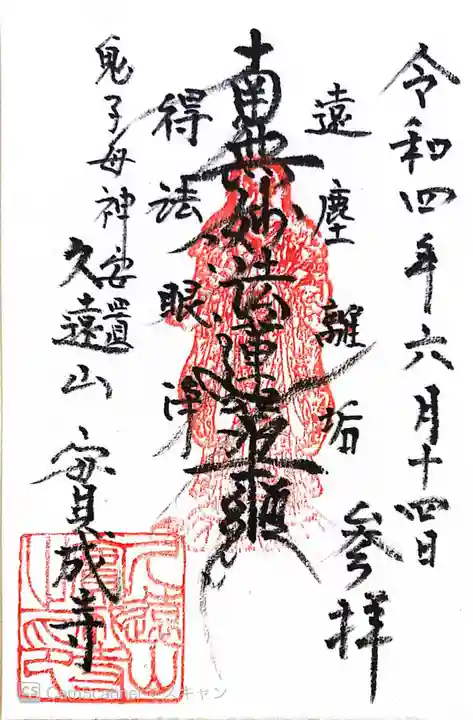 令和四年六月十四日
参拝
遠塵離垢
南無妙法蓮華経
得法眼浄
鬼子母神安置
久遠山 安貞成寺
CS CamScanner でスキャン